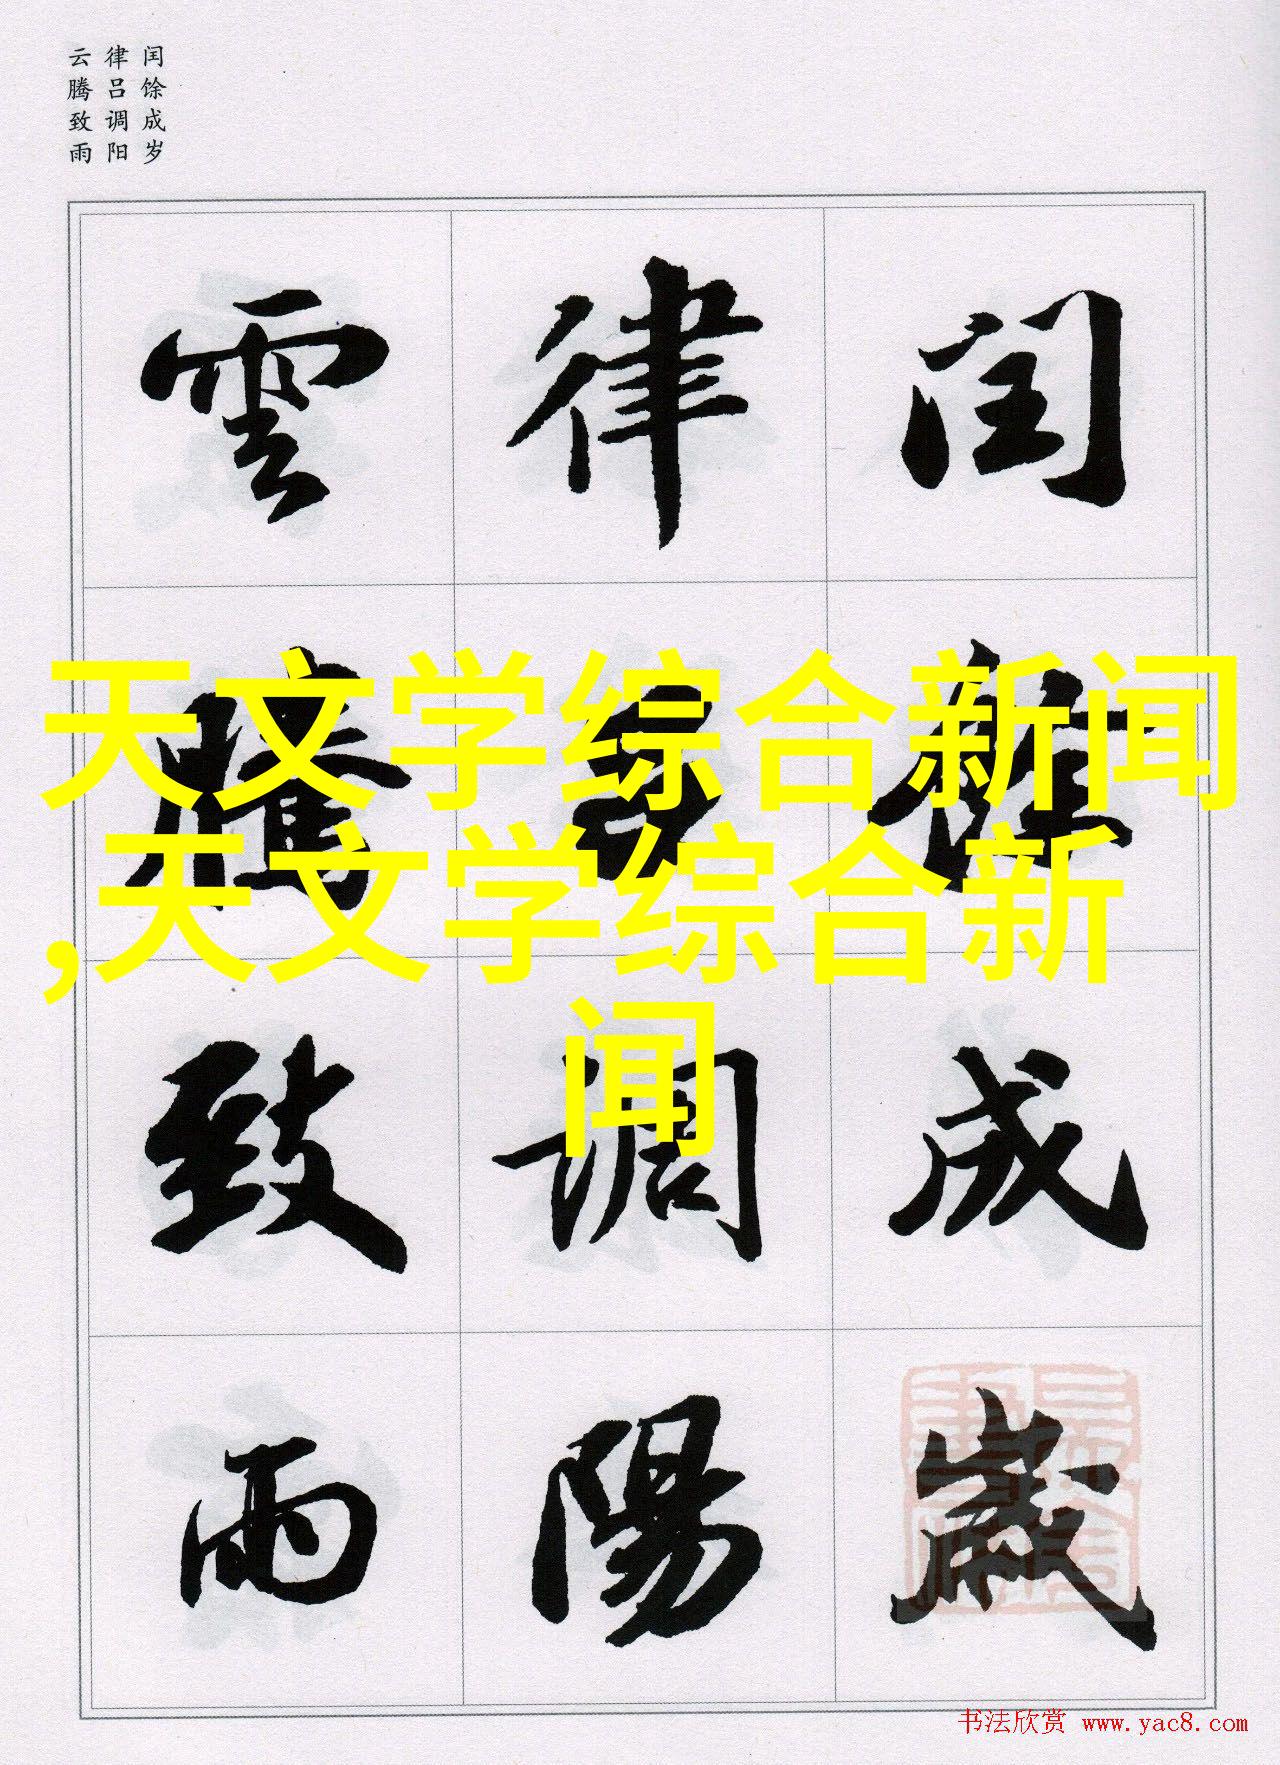 闰馀成岁
律吕调阳
云腾致雨
闰馀成歲
律吕调陽
雲腾致雨
天文学综合新闻
,天文学综合新
闻
书法欣赏 www.yac8.com